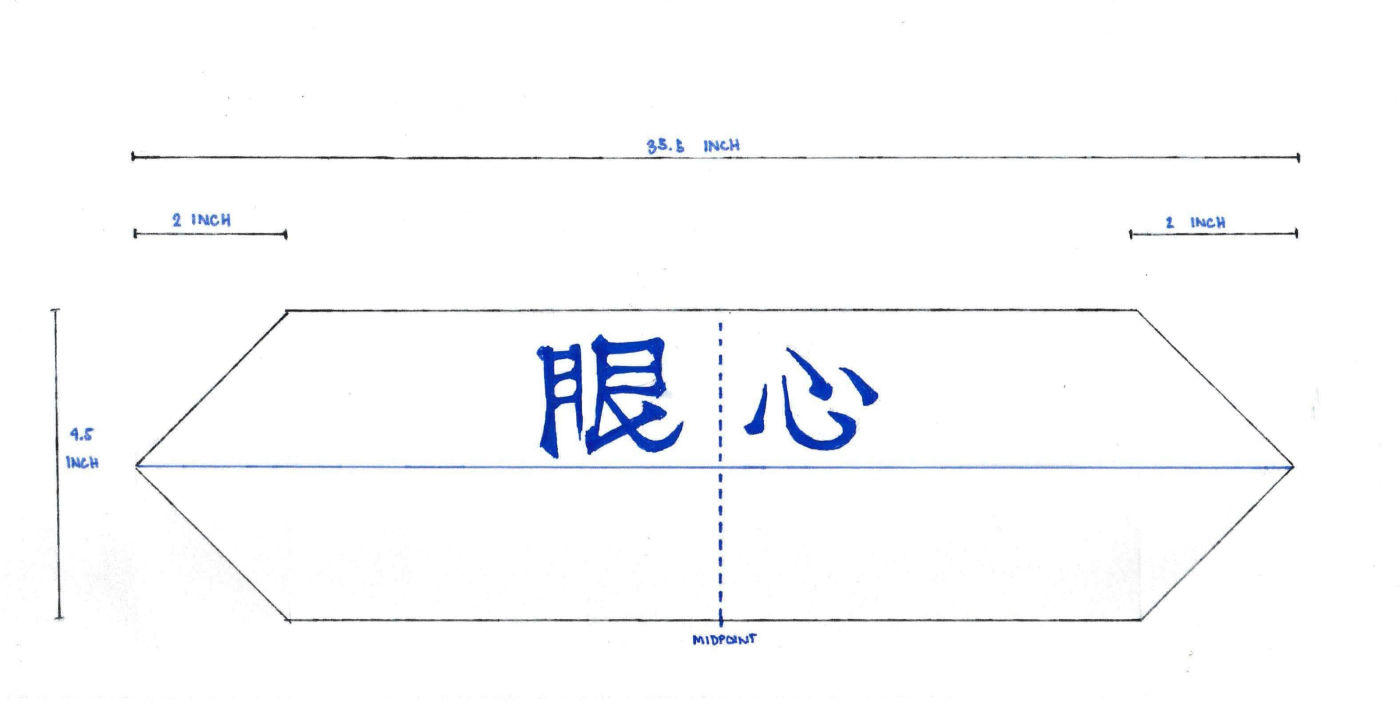 35.5 INCH
2 INCH
2 INCH
眼 心
4.5
INCH
MIDPOINT